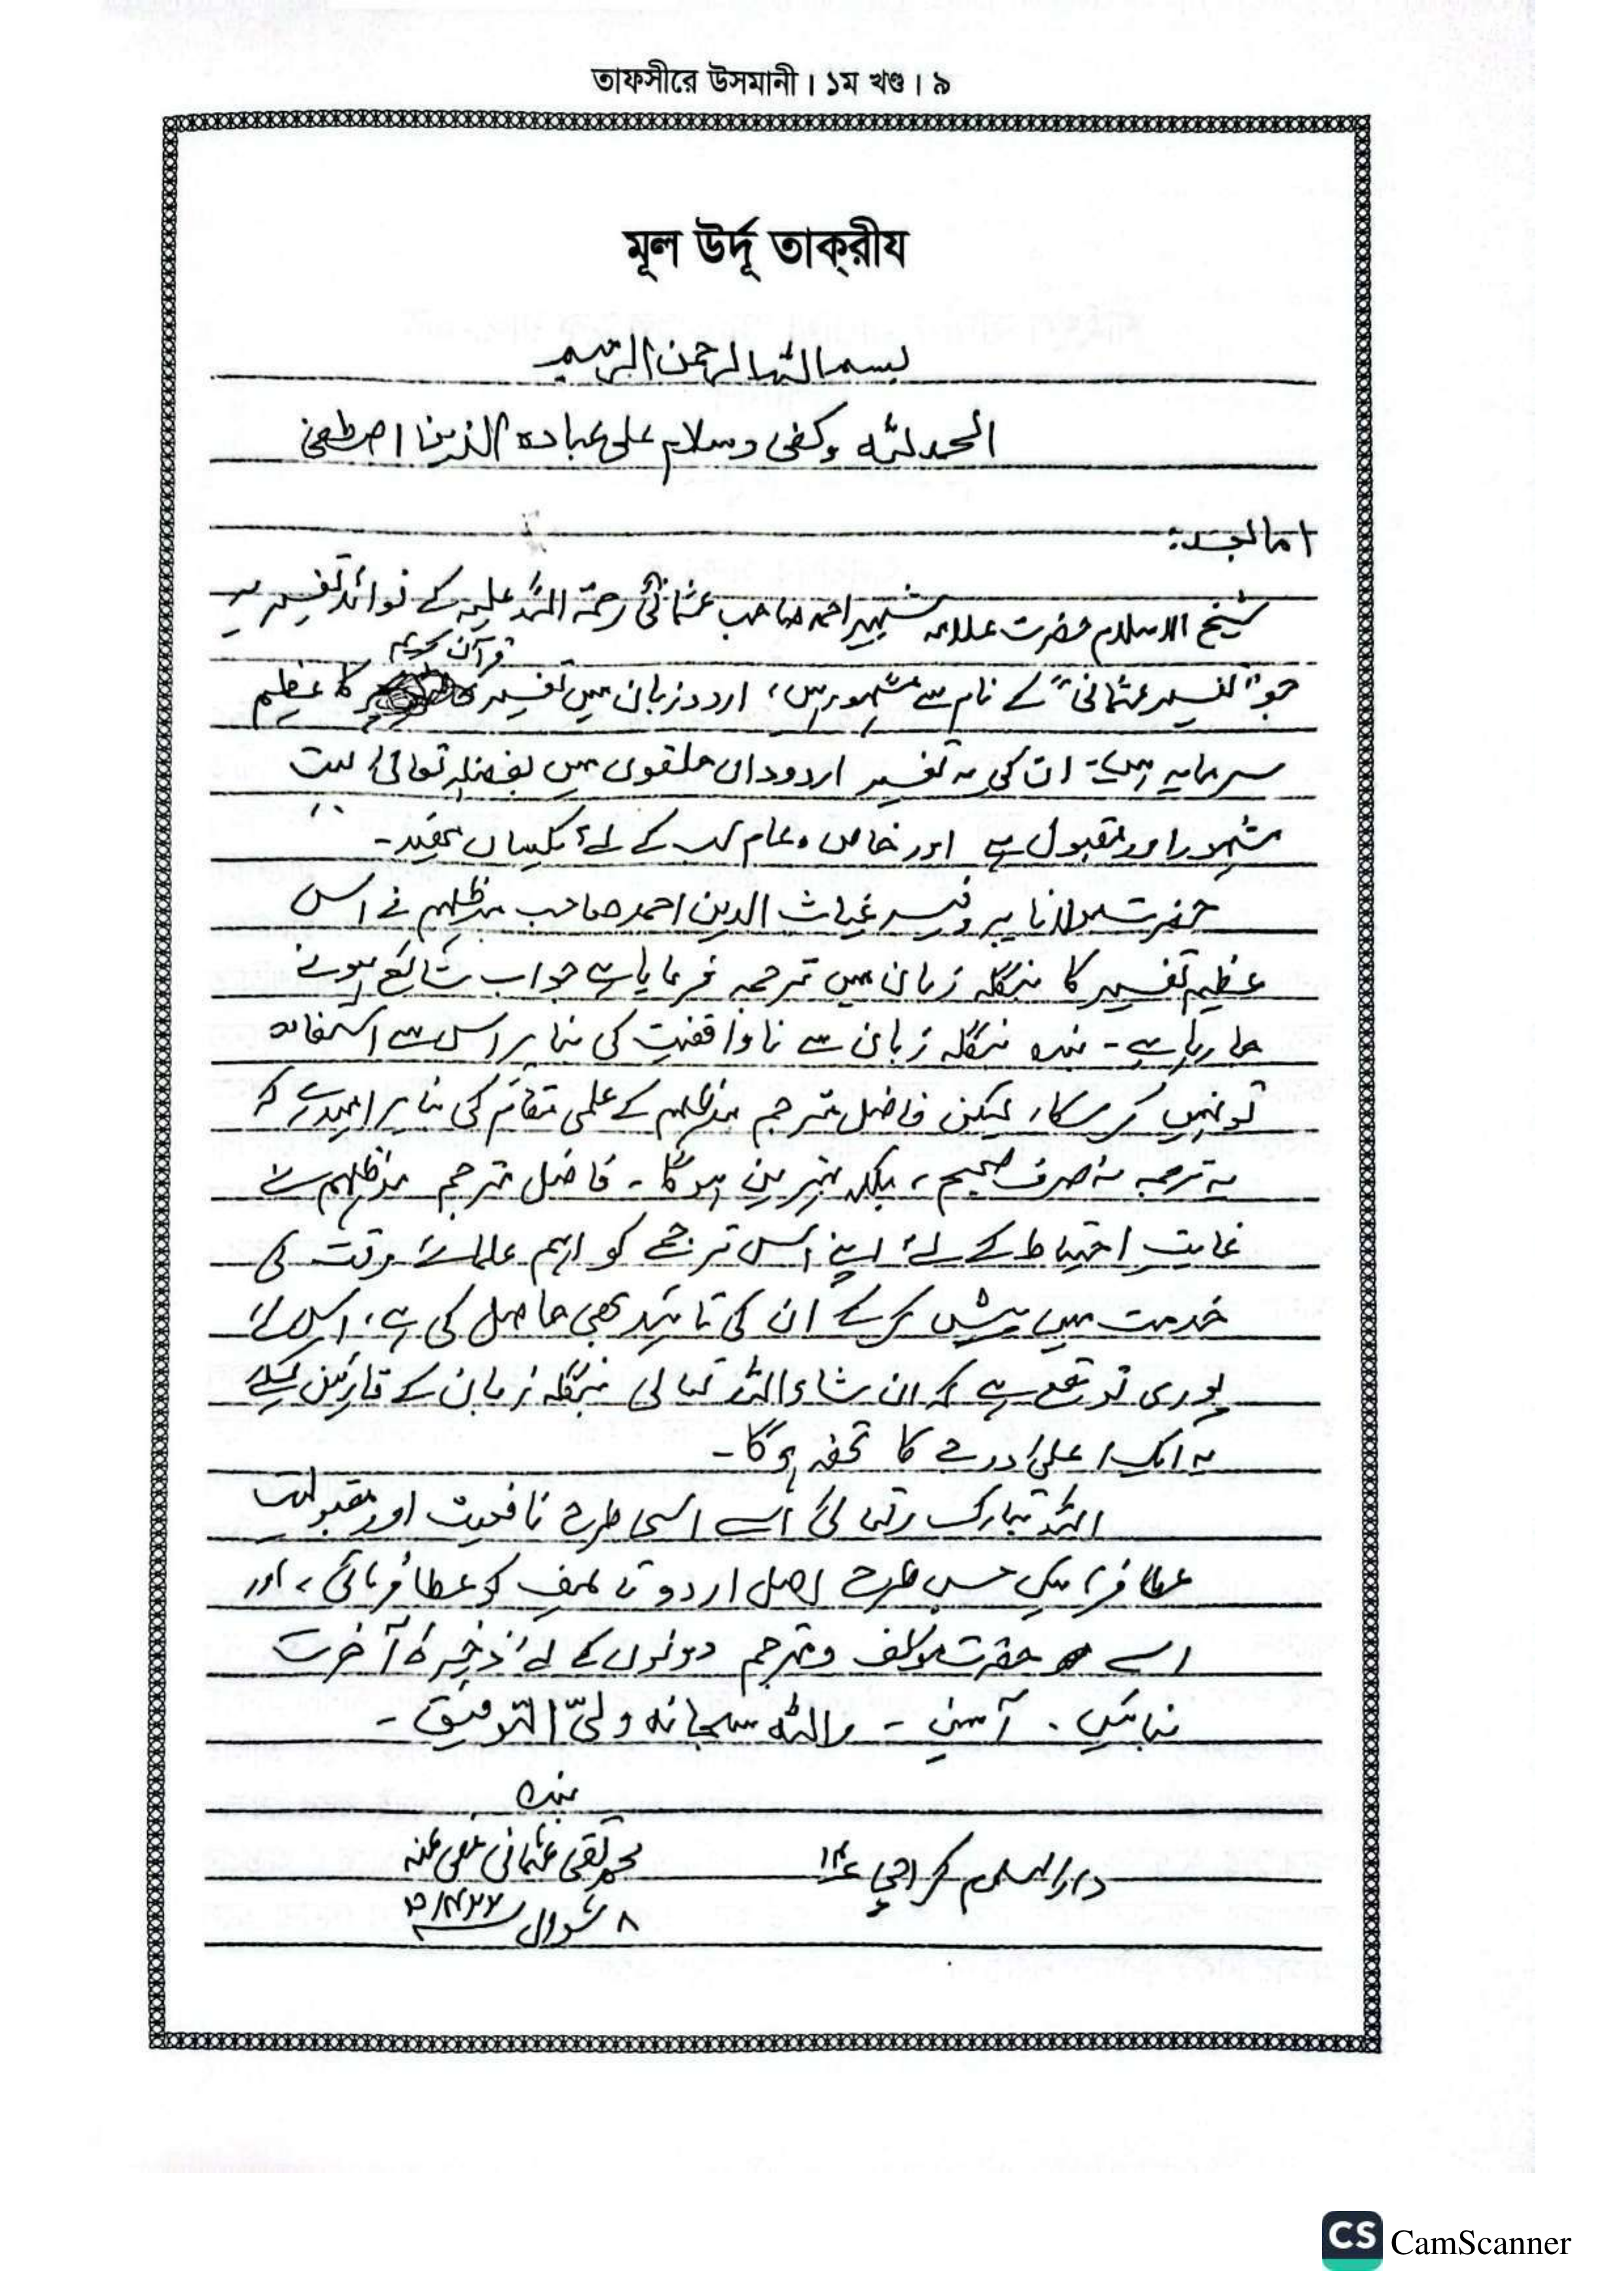 তাফসীরে উসমানী । ১ম খণ্ড । ৯
মূল উর্দূ তাক্‌রীয
بسم اللہ الرحمن الرحیم
الحمد للہ وکفی وسلام علی عبادہ الذین اصطفی
اما بعد:
شیخ الاسلام حضرت علامہ شبیر احمد صاحب عثمانی رحمۃ اللہ علیہ کے فوائد تفسیریہ
قرآن کریم
جو "تفسیر عثمانی" کے نام سے مشہور ہیں، اردو زبان میں تفسیر کا عظیم
سرمایہ ہیں۔ ان کی یہ تفسیر اردوداں حلقوں میں بفضلہ تعالیٰ بہت
مشہور اور مقبول ہے اور خاص و عام سب کے لئے یکساں مفید۔
حضرت مولانا پروفیسر غیاث الدین احمد صاحب مدظلہم نے اس
عظیم تفسیر کا بنگلہ زبان میں ترجمہ فرمایا ہے جو اب شائع ہونے
جا رہا ہے۔ بندہ بنگلہ زبان سے ناواقفیت کی بنا پر اس سے استفادہ
تو نہیں کر سکا، لیکن فاضل مترجم مدظلہم کے علمی مقام کی بنا پر امید ہے کہ
یہ ترجمہ نہ صرف صحیح، بلکہ بہترین ہوگا۔ فاضل مترجم مدظلہم نے
غایت احتیاط کے لئے اپنے اس ترجمے کو اہم علمائے وقت کی
خدمت میں پیش کرکے ان کی تائید بھی حاصل کی ہے، اس لئے
پوری توقع ہے کہ ان شاء اللہ تعالی بنگلہ زبان کے قارئین کیلئے
یہ ایک اعلیٰ درجے کا تحفہ ہوگا۔
اللہ تبارک وتعالیٰ اسے اسی طرح نافعیت اور مقبولیت
عطا فرمائیں جس طرح اصل اردو تالیف کو عطا فرمائی، اور
اسے حضرت مؤلف و مترجم دونوں کے لئے ذخیرۂ آخرت
بنائیں۔ آمین۔ واللہ سبحانہ ولیّ التوفیق۔
بندہ
محمد تقی عثمانی عفی عنہ
دارالعلوم کراچی ۱۴
۸ شوال
CS CamScanner